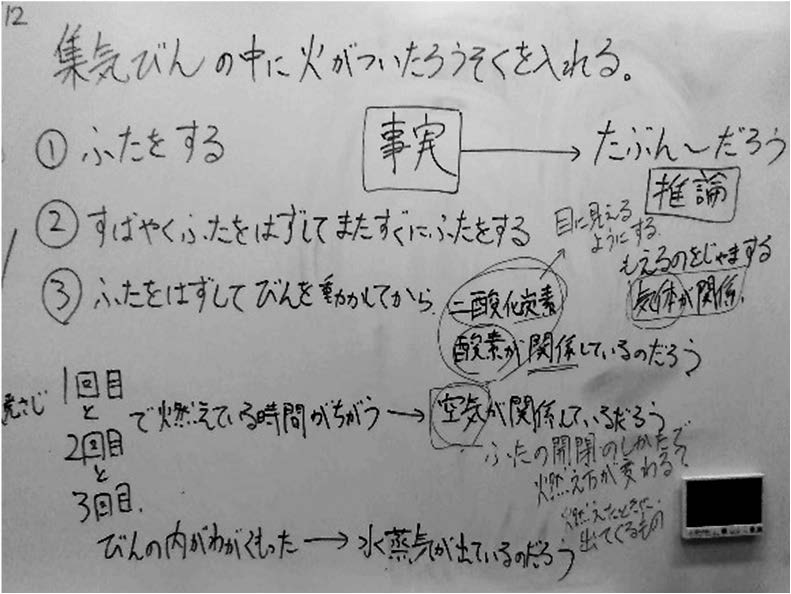 12
集気びんの中に火がついたろうそくを入れる。
① ふたをする
事実 → たぶん〜だろう
推論
② すばやくふたをはずしてまたすぐにふたをする
目に見える
ようにする.
もえるのをじゃまする
気体が関係.
③ ふたをはずしてびんを動かしてから.
二酸化炭素
酸素が関係しているのだろう
1回目
と
2回目
と
3回目.
で燃えている時間がちがう → 空気が関係しているだろう
ふたの開閉のしかたで
燃え方が変わる
燃えたときに
出てくるもの
びんの内がわがくもった → 水蒸気が出ているのだろう